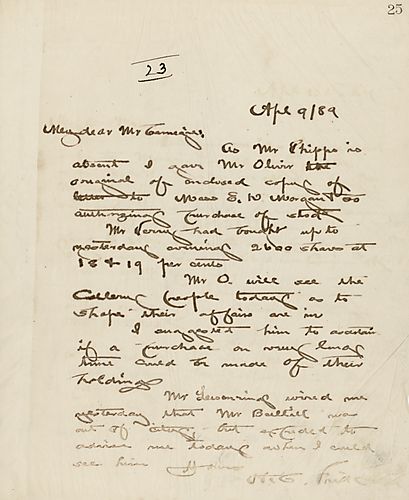 25
23
Apl 9/89
My dear Mr Carnegie,
As Mr Phipps is
absent I gave Mr Oliver the
original of enclosed copy of
letter to Mess E. D. Morgan & Co
authorizing purchase of stock
Mr had bought up to
yesterday evening 2600 shares at
18 & 19 per cent
Mr O. will see the
Callery people today as to
shape their affairs are in
I suggested him to ascertain
if a purchase on very long
time could be made of their
holdings
Mr Leisenring wired me
yesterday that Mr was
out of city, but expected to
advise me today when I could
see him Yours
H C Frick